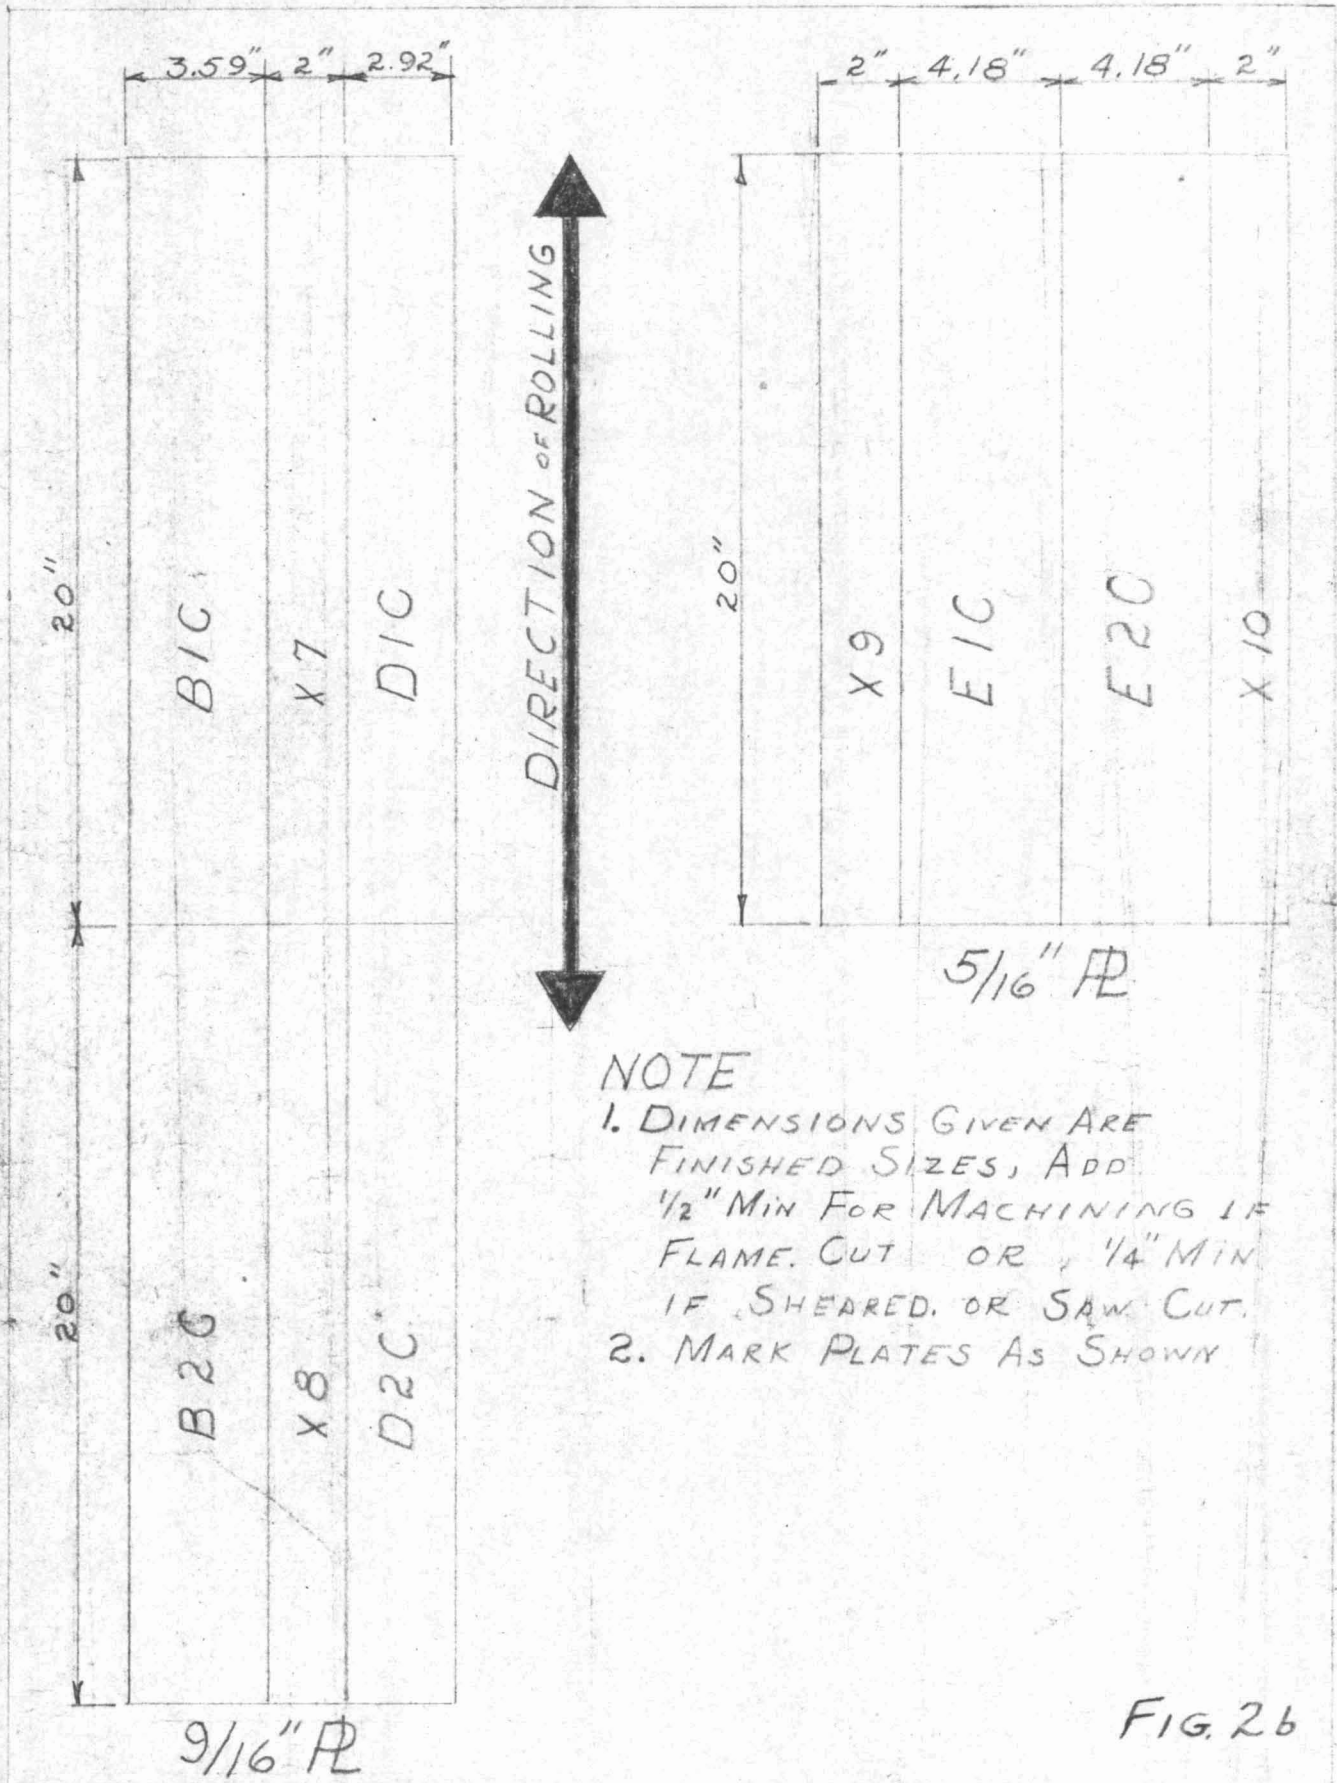 3.59" 2" 2.92"
2" 4.18" 4.18" 2"
20"
B1C
X7
D1C
DIRECTION OF ROLLING
20"
X9
E1C
E2C
X10
5/16" PL
20"
B2C
X8
D2C
9/16" PL
NOTE
1. DIMENSIONS GIVEN ARE
FINISHED SIZES, ADD
1/2" MIN FOR MACHINING IF
FLAME CUT OR 1/4" MIN
IF SHEARED OR SAW CUT.
2. MARK PLATES AS SHOWN
FIG. 2b